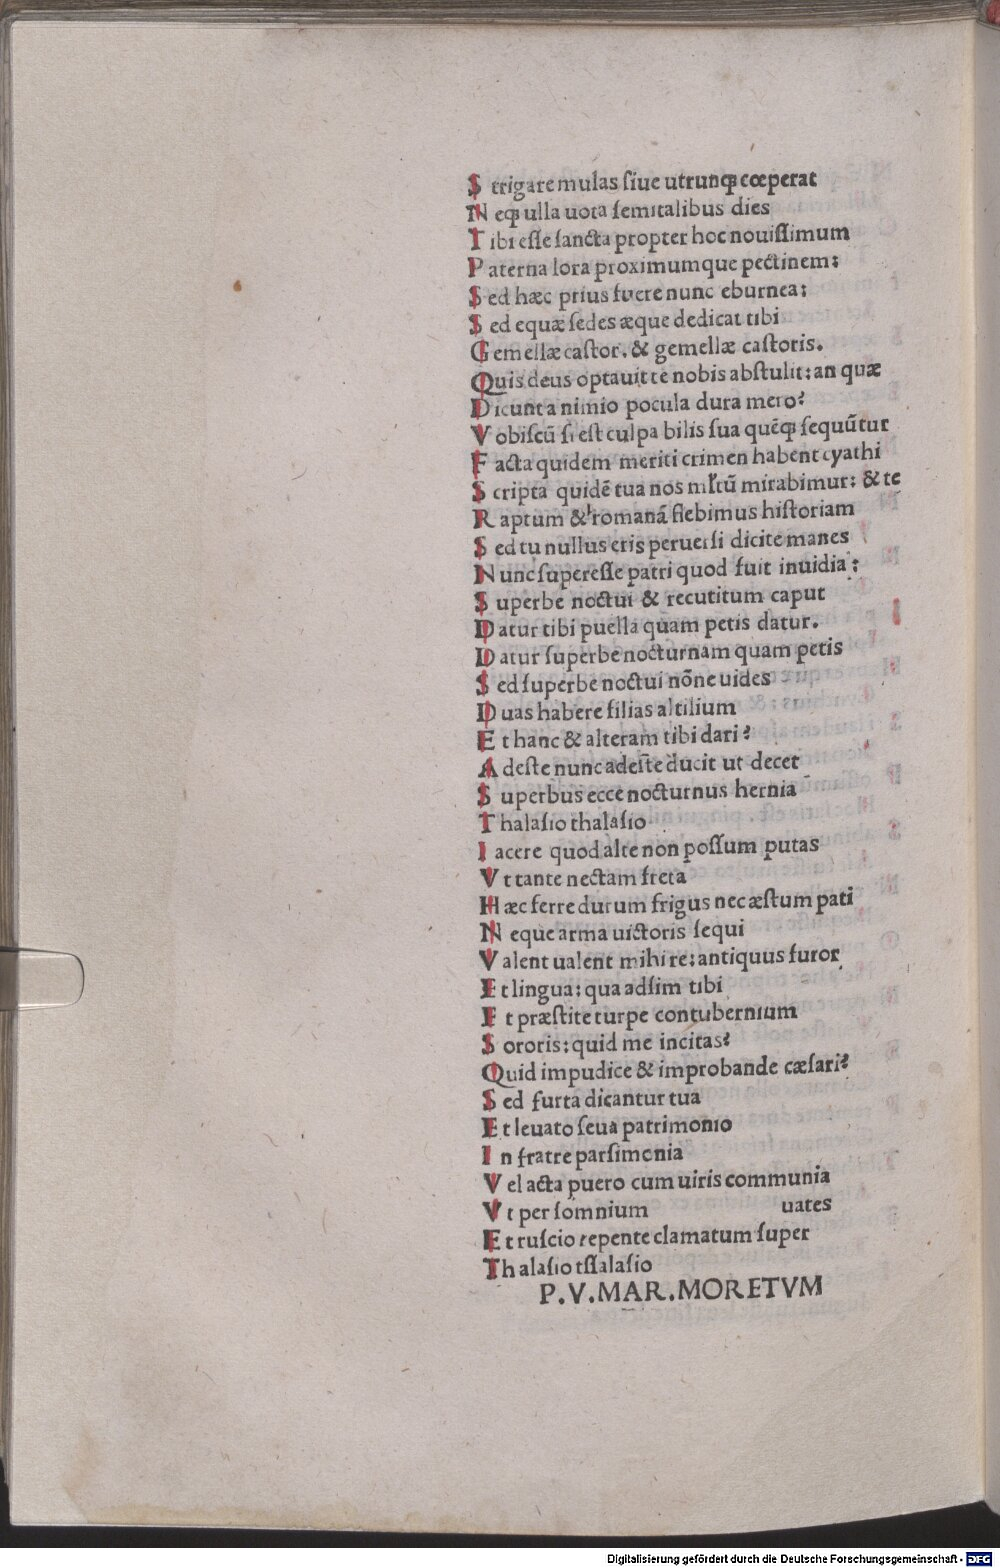 S trigare mulas ſiue utrunqꝫ cœperat
N eqꝫ ulla uota ſemitalibus dies
T ibi eſſe ſancta propter hoc nouiſſimum
P aterna lora proximumque pectinem:
S ed hæc prius fuere nunc eburnea:
S ed equæ ſedes æque dedicat tibi
G emellæ caſtor. & gemellæ caſtoris.
Quis deus optauit te nobis abſtulit: an quæ
D icunt a nimio pocula dura mero?
V obiſcū ſi eſt culpa bilis ſua quēqꝫ ſequūtur
F acta quidem meriti crimen habent cyathi
S cripta quidē tua nos mltū mirabimur: & te
R aptum & romanā flebimus hiſtoriam
S ed tu nullus eris peruerſi dicite manes
N unc ſupereſſe patri quod fuit inuidia:
S uperbe noctui & recutitum caput
D atur tibi puella quam petis datur.
D atur ſuperbe nocturnam quam petis
S ed ſuperbe noctui nōne uides
D uas habere filias altilium
E t hanc & alteram tibi dari?
A deſte nunc adeſte ducit ut decet
S uperbus ecce nocturnus hernia
T halaſio thalaſio
I acere quod alte non poſſum putas
V t tante nectam freta
H æc ferre durum frigus nec æſtum pati
N eque arma uictoris ſequi
V alent ualent mihi re: antiquus furor
E t lingua: qua adſim tibi
E t præſtite turpe contubernium
S ororis: quid me incitas?
Quid impudice & improbande cæſari?
S ed furta dicantur tua
E t leuato ſeua patrimonio
I n fratre parſimonia
V el acta puero cum uiris communia
V t per ſomnium uates
E t ruſcio repente clamatum ſuper
Th alaſio tſſalaſio
P. V. MAR. MORETVM
Digitalisierung gefördert durch die Deutsche Forschungsgemeinschaft - DFG